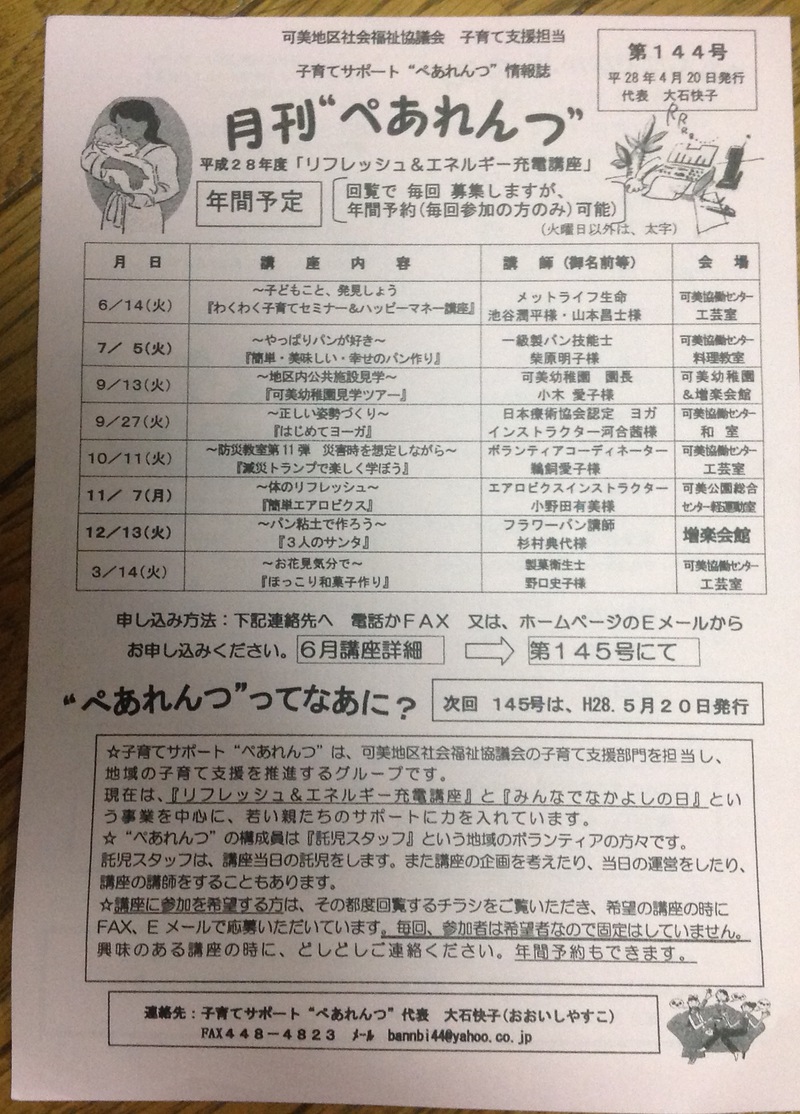 可美地区社会福祉協議会 子育て支援担当
子育てサポート“ぺあれんつ”情報誌
第144号
平28年4月20日発行
代表 大石快子
月刊“ぺあれんつ”
平成28年度「リフレッシュ&エネルギー充電講座」
年間予定
回覧で 毎回 募集しますが、
年間予約(毎回参加の方のみ)可能
(火曜日以外は、太字)
月 日 講 座 内 容 講 師(御名前等) 会 場
6/14(火) ~子どもこと、発見しよう 『わくわく子育てセミナー&ハッピーマネー講座』 メットライフ生命 池谷潤平様・山本昌士様 可美協働センター 工芸室
7/ 5(火) ~やっぱりパンが好き~ 『簡単・美味しい・幸せのパン作り』 一級製パン技能士 柴原明子様 可美協働センター 料理教室
9/13(火) ~地区内公共施設見学~ 『可美幼稚園見学ツアー』 可美幼稚園 園長 小木 愛子様 可美幼稚園 &増楽会館
9/27(火) ~正しい姿勢づくり~ 『はじめてヨーガ』 日本療術協会認定 ヨガ インストラクター河合茜様 可美協働センター 和 室
10/11(火) ~防災教室第11弾 災害時を想定しながら~ 『減災トランプで楽しく学ぼう』 ボランティアコーディネーター 鵜飼愛子様 可美協働センター 工芸室
11/ 7(月) ~体のリフレッシュ~ 『簡単エアロビクス』 エアロビクスインストラクター 小野田有美様 可美公園総合 センター軽運動室
12/13(火) ~パン粘土で作ろう~ 『3人のサンタ』 フラワーパン講師 杉村典代様 増楽会館
3/14(火) ~お花見気分で~ 『ほっこり和菓子作り』 製菓衛生士 野口史子様 可美協働センター 工芸室
申し込み方法:下記連絡先へ 電話かFAX 又は、ホームページのEメールから
お申し込みください。 6月講座詳細 ⇒ 第145号にて
“ぺあれんつ”ってなあに?
次回 145号は、H28.5月20日発行
☆子育てサポート“ぺあれんつ”は、可美地区社会福祉協議会の子育て支援部門を担当し、
地域の子育て支援を推進するグループです。
現在は、『リフレッシュ&エネルギー充電講座』と『みんなでなかよしの日』とい
う事業を中心に、若い親たちのサポートに力を入れています。
☆“ぺあれんつ”の構成員は『託児スタッフ』という地域のボランティアの方々です。
託児スタッフは、講座当日の託児をします。また講座の企画を考えたり、当日の運営をしたり、
講座の講師をすることもあります。
☆講座に参加を希望する方は、その都度回覧するチラシをご覧いただき、希望の講座の時に
FAX、Eメールで応募いただいています。毎回、参加者は希望者なので固定はしていません。
興味のある講座の時に、どしどしご連絡ください。年間予約もできます。
連絡先:子育てサポート“ぺあれんつ”代表 大石快子(おおいしやすこ)
FAX448-4823 メール bannbi44@yahoo.co.jp